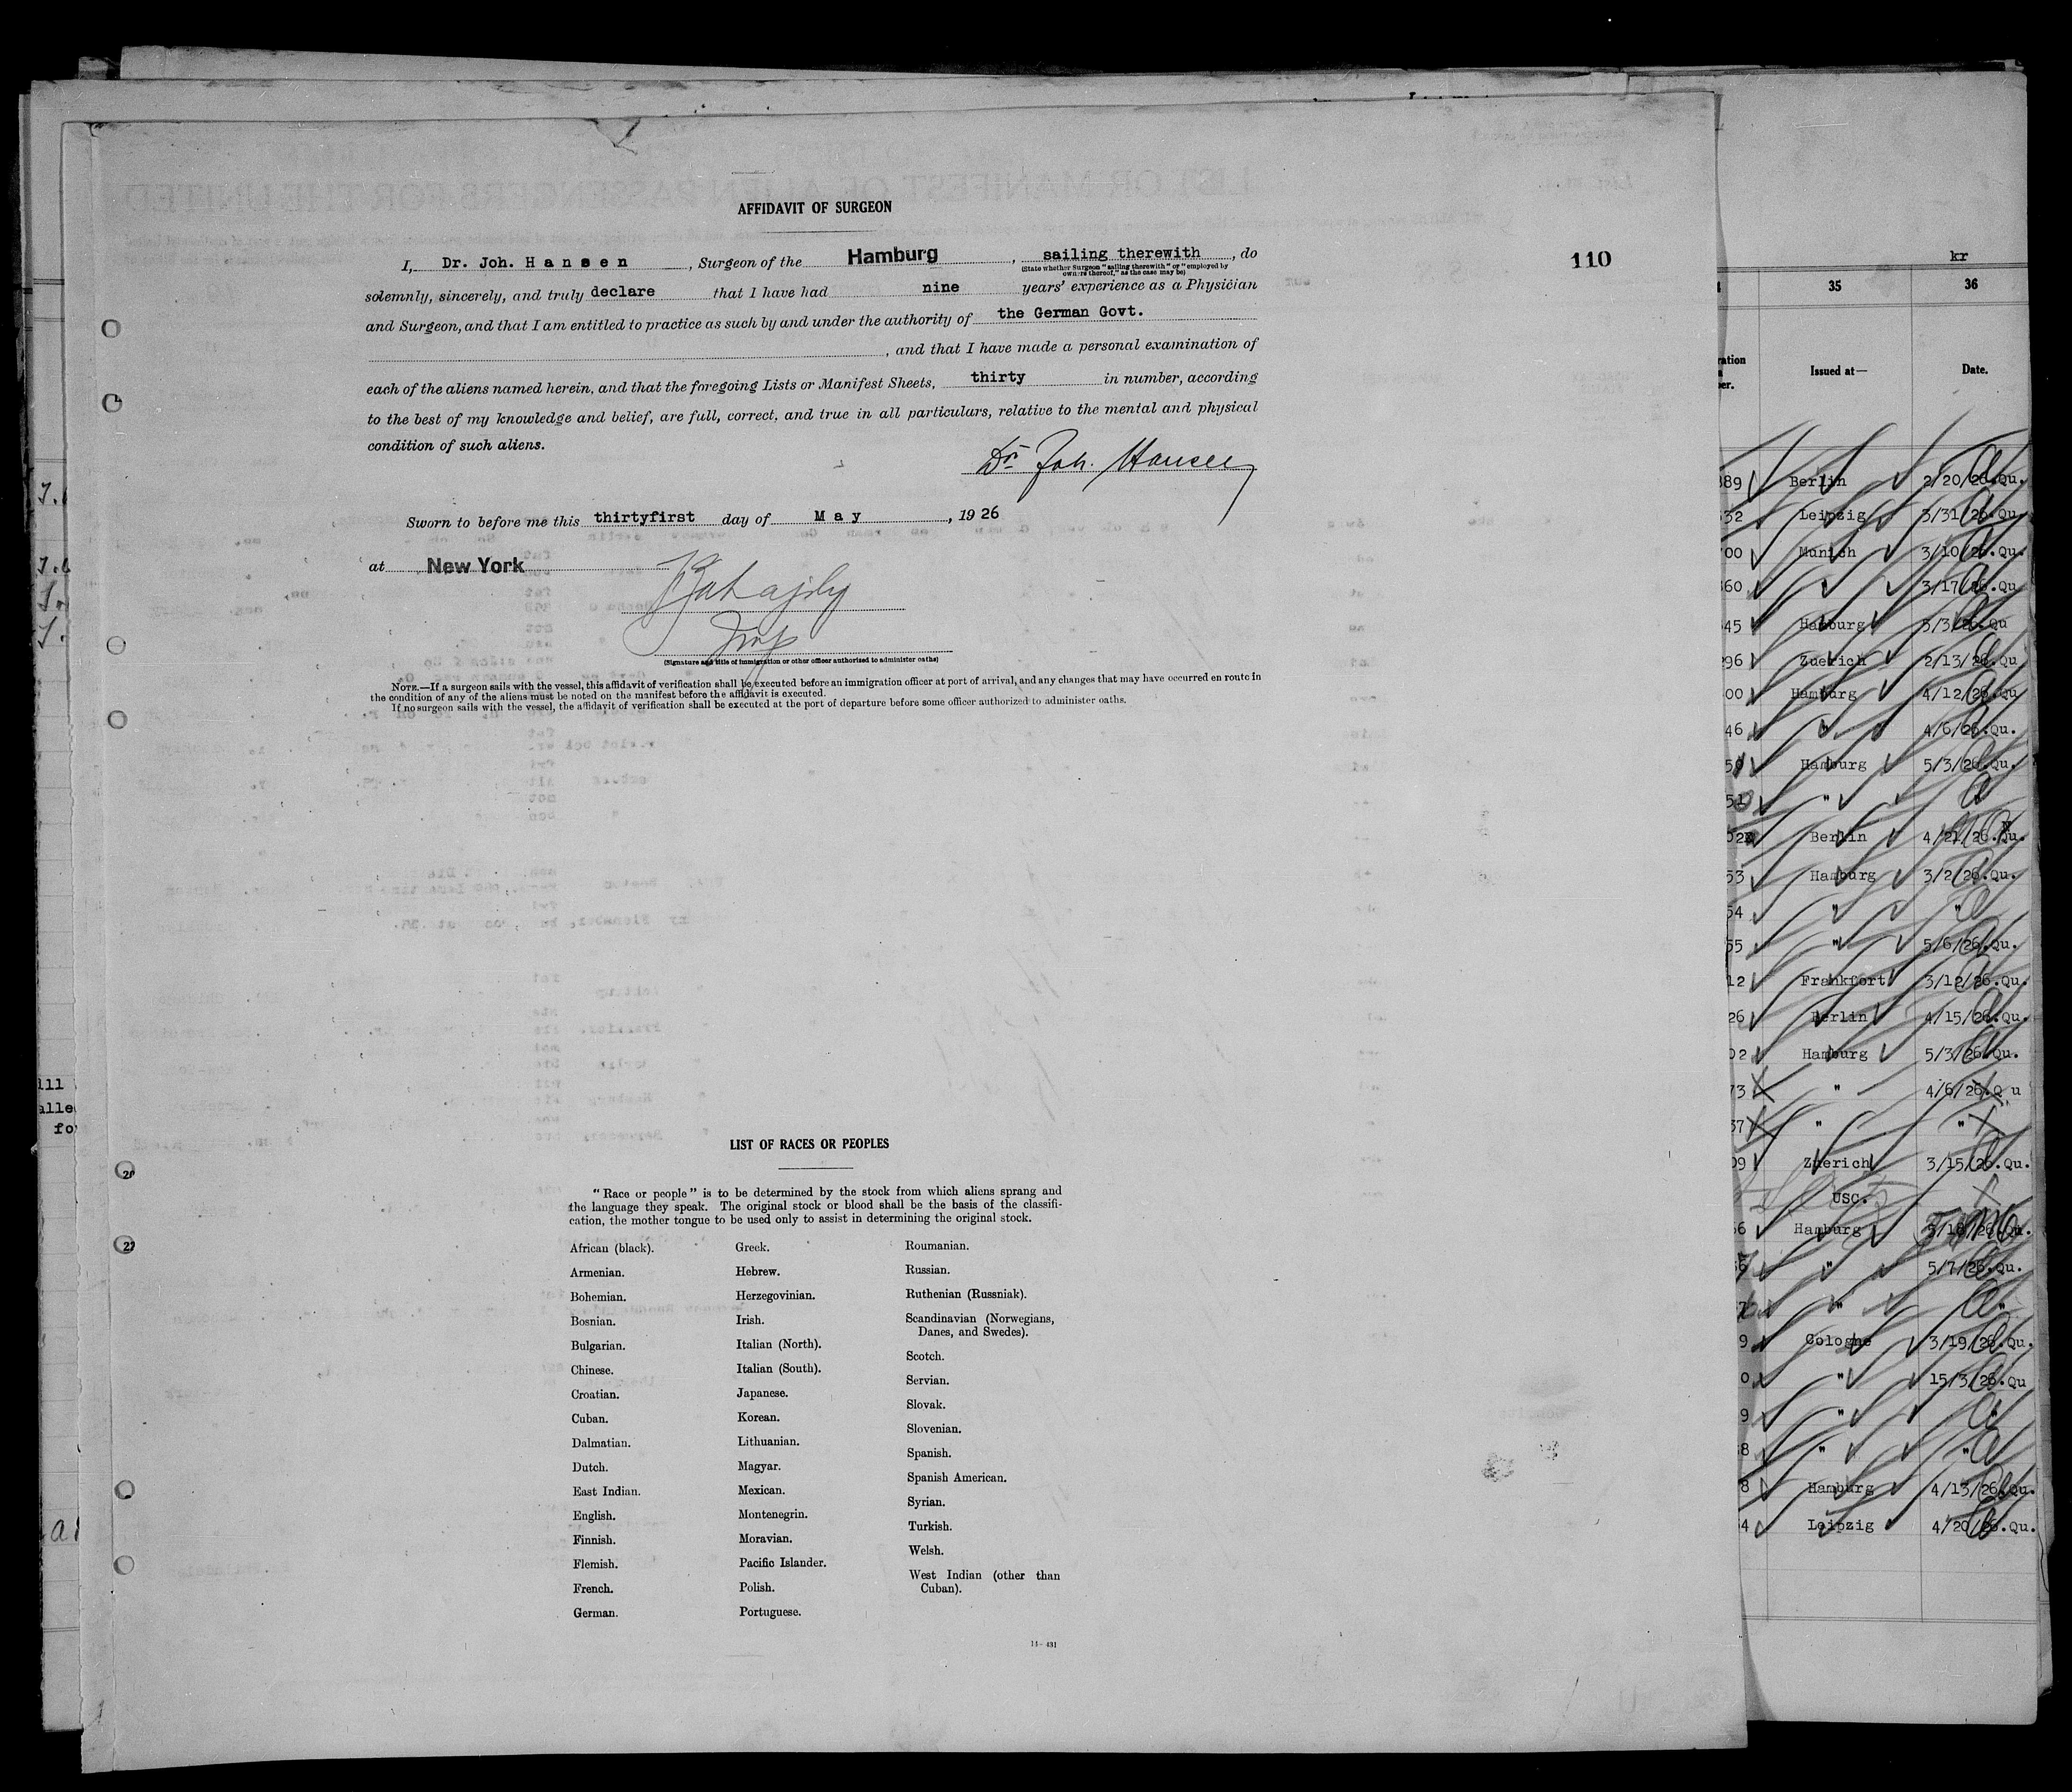 AFFIDAVIT OF SURGEON
110
I, Dr. Joh. Hansen, Surgeon of the Hamburg, sailing therewith, do
(State whether Surgeon "sailing therewith" or "employed by
owners thereof," as the case may be)
solemnly, sincerely, and truly declare that I have had nine years' experience as a Physician
and Surgeon, and that I am entitled to practice as such by and under the authority of the German Govt.
, and that I have made a personal examination of
each of the aliens named herein, and that the foregoing Lists or Manifest Sheets, thirty in number, according
to the best of my knowledge and belief, are full, correct, and true in all particulars, relative to the mental and physical
condition of such aliens.
Dr. Joh. Hansen
Sworn to before me this thirtyfirst day of May, 1926
at New York
(Signature and title of immigration or other officer authorized to administer oaths)
NOTE.—If a surgeon sails with the vessel, this affidavit of verification shall be executed before an immigration officer at port of arrival, and any changes that may have occurred en route in
the condition of any of the aliens must be noted on the manifest before the affidavit is executed.
If no surgeon sails with the vessel, the affidavit of verification shall be executed at the port of departure before some officer authorized to administer oaths.
LIST OF RACES OR PEOPLES
"Race or people" is to be determined by the stock from which aliens sprang and
the language they speak. The original stock or blood shall be the basis of the classifi-
cation, the mother tongue to be used only to assist in determining the original stock.
African (black).
Armenian.
Bohemian.
Bosnian.
Bulgarian.
Chinese.
Croatian.
Cuban.
Dalmatian.
Dutch.
East Indian.
English.
Finnish.
Flemish.
French.
German.
Greek.
Hebrew.
Herzegovinian.
Irish.
Italian (North).
Italian (South).
Japanese.
Korean.
Lithuanian.
Magyar.
Mexican.
Montenegrin.
Moravian.
Pacific Islander.
Polish.
Portuguese.
Roumanian.
Russian.
Ruthenian (Russniak).
Scandinavian (Norwegians,
Danes, and Swedes).
Scotch.
Servian.
Slovak.
Slovenian.
Spanish.
Spanish American.
Syrian.
Turkish.
Welsh.
West Indian (other than
Cuban).
14—431
kr
35 36
Issued at— Date.
89 Berlin 2/20/26.Qu.
32 Leipzig 3/31/26.Qu.
00 Munich 3/10/26.Qu.
60 3/17/26.Qu
45 Hamburg 5/3/26.Qu
96 Zuerich 2/13/26.Qu
00 Hamburg 4/12/26.Qu
46 " 4/6/26.Qu.
50 Hamburg 5/3/26.Qu.
51 "
02 Berlin 4/21/26.Qu.
53 Hamburg 3/2/26.Qu.
54 " "
55 " 5/6/26.Qu.
12 Frankfort 3/12/26.Qu.
26 Berlin 4/15/26.Qu.
02 Hamburg 5/3/26.Qu.
73 " 4/6/26.Qu
37 " "
09 Zuerich 3/15/26.Qu.
USC.
66 Hamburg 5/18/26.Qu.
" 5/7/26.Qu.
" "
9 Cologne 3/19/26.Qu.
0 " 15/3/26.Qu
9 " "
8 " "
8 Hamburg 4/13/26.Qu.
4 Leipzig 4/20/26.Qu.